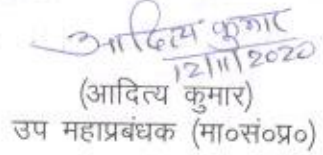 आदित्य कुमार
12/11/2020
(आदित्य कुमार)
उप महाप्रबंधक (मा०सं०प्र०)